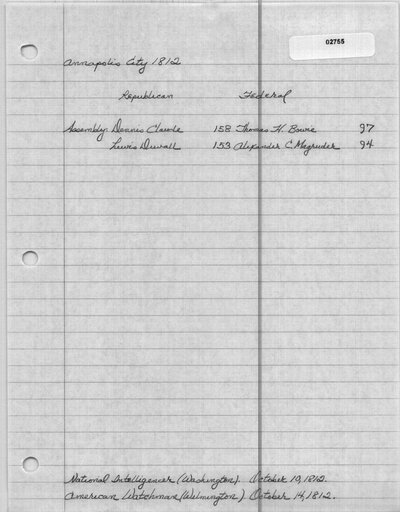 02755
Annapolis City 1812
Republican Federal
Assembly: Dennis Claude 158 Thomas H. Bowie 97
Lewis Duvall 153 Alexander C Magruder 94
National Intelligencer (Washington). October 10, 1812.
American Watchman (Wilmington). October 14, 1812.